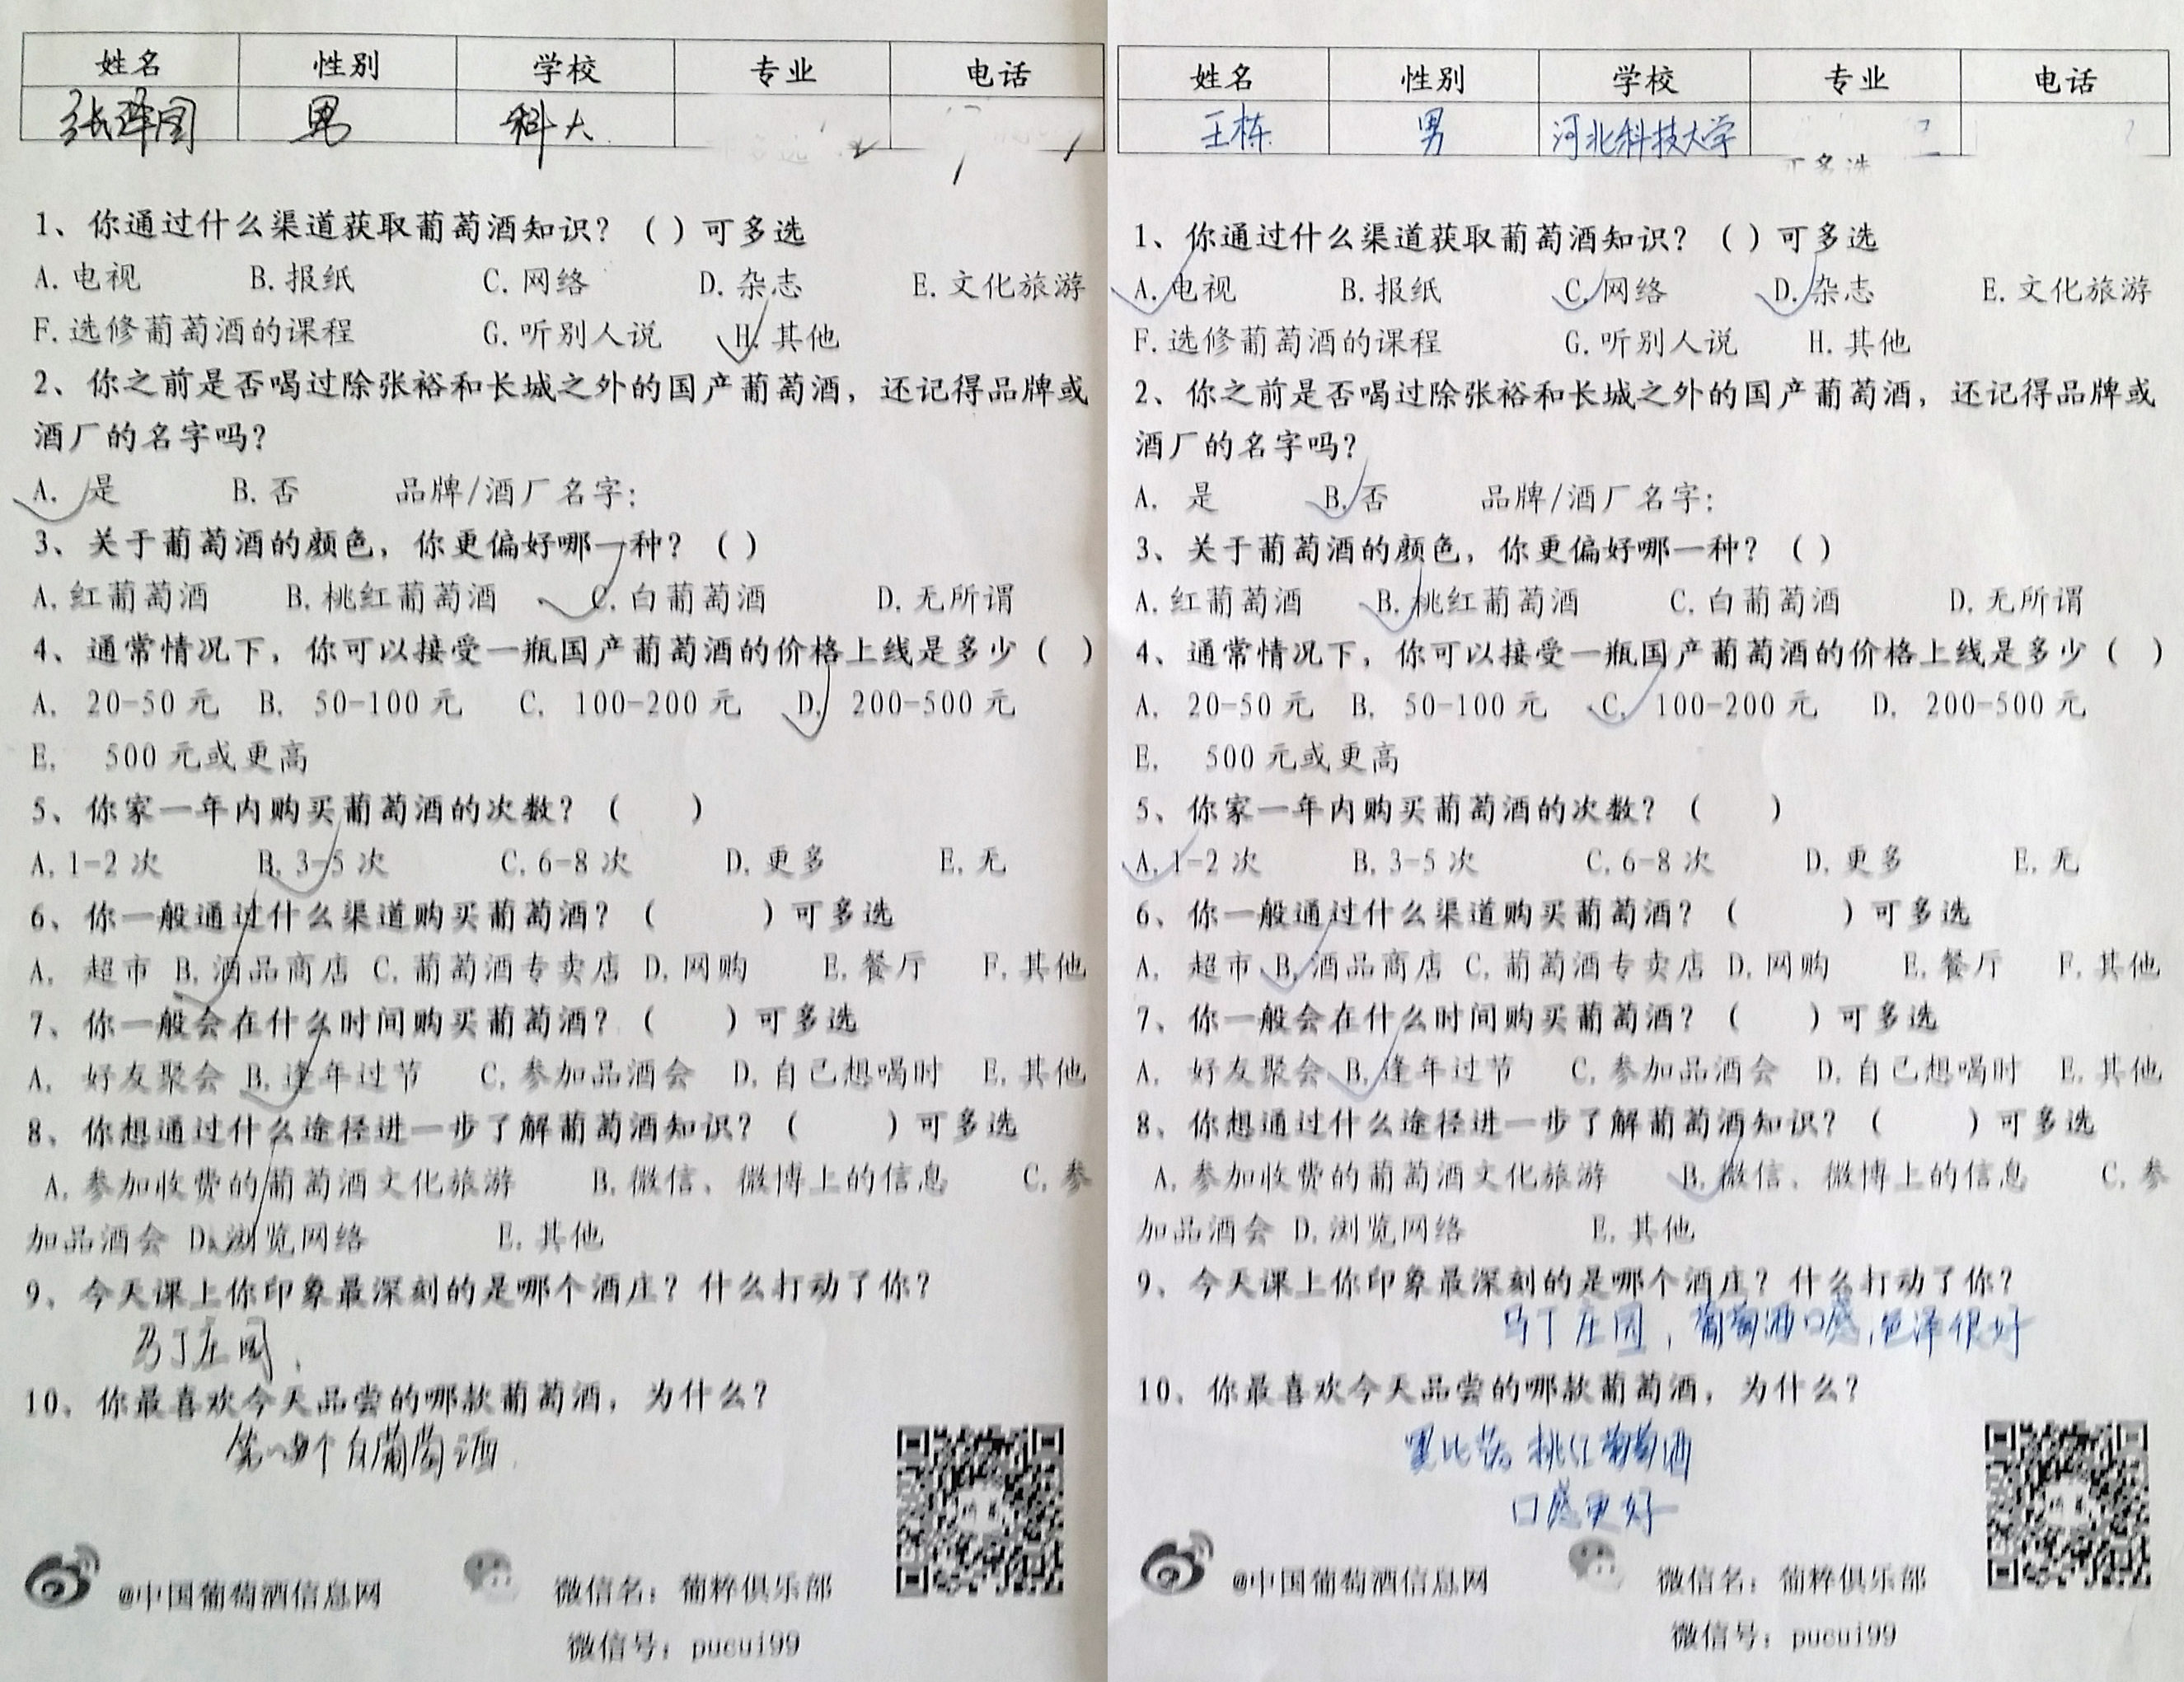 姓名 性别 学校 专业 电话
张泽国 男 科大
1、你通过什么渠道获取葡萄酒知识？（ ）可多选
A.电视 B.报纸 C.网络 D.杂志 E.文化旅游
F.选修葡萄酒的课程 G.听别人说 H.其他
2、你之前是否喝过除张裕和长城之外的国产葡萄酒，还记得品牌或
酒厂的名字吗？
A. 是 B.否 品牌/酒厂名字：
3、关于葡萄酒的颜色，你更偏好哪一种？（ ）
A.红葡萄酒 B.桃红葡萄酒 C.白葡萄酒 D.无所谓
4、通常情况下，你可以接受一瓶国产葡萄酒的价格上线是多少（ ）
A. 20-50元 B. 50-100元 C. 100-200元 D. 200-500元
E. 500元或更高
5、你家一年内购买葡萄酒的次数？（ ）
A.1-2次 B.3-5次 C.6-8次 D.更多 E.无
6、你一般通过什么渠道购买葡萄酒？（ ）可多选
A. 超市 B.酒品商店 C.葡萄酒专卖店 D.网购 E.餐厅 F.其他
7、你一般会在什么时间购买葡萄酒？（ ）可多选
A. 好友聚会 B.逢年过节 C.参加品酒会 D.自己想喝时 E.其他
8、你想通过什么途径进一步了解葡萄酒知识？（ ）可多选
A.参加收费的葡萄酒文化旅游 B.微信、微博上的信息 C.参
加品酒会 D.浏览网络 E.其他
9、今天课上你印象最深刻的是哪个酒庄？什么打动了你？
马丁庄园．
10、你最喜欢今天品尝的哪款葡萄酒，为什么？
第一个白葡萄酒．
@中国葡萄酒信息网 微信名：葡粹俱乐部
微信号：pucui99
姓名 性别 学校 专业 电话
王栋 男 河北科技大学
可多选
1、你通过什么渠道获取葡萄酒知识？（ ）可多选
A.电视 B.报纸 C.网络 D.杂志 E.文化旅游
F.选修葡萄酒的课程 G.听别人说 H.其他
2、你之前是否喝过除张裕和长城之外的国产葡萄酒，还记得品牌或
酒厂的名字吗？
A. 是 B.否 品牌/酒厂名字：
3、关于葡萄酒的颜色，你更偏好哪一种？（ ）
A.红葡萄酒 B.桃红葡萄酒 C.白葡萄酒 D.无所谓
4、通常情况下，你可以接受一瓶国产葡萄酒的价格上线是多少（ ）
A. 20-50元 B. 50-100元 C. 100-200元 D. 200-500元
E. 500元或更高
5、你家一年内购买葡萄酒的次数？（ ）
A.1-2次 B.3-5次 C.6-8次 D.更多 E.无
6、你一般通过什么渠道购买葡萄酒？（ ）可多选
A. 超市 B.酒品商店 C.葡萄酒专卖店 D.网购 E.餐厅 F.其他
7、你一般会在什么时间购买葡萄酒？（ ）可多选
A. 好友聚会 B.逢年过节 C.参加品酒会 D.自己想喝时 E.其他
8、你想通过什么途径进一步了解葡萄酒知识？（ ）可多选
A.参加收费的葡萄酒文化旅游 B.微信、微博上的信息 C.参
加品酒会 D.浏览网络 E.其他
9、今天课上你印象最深刻的是哪个酒庄？什么打动了你？
马丁庄园，葡萄酒口感，色泽很好
10、你最喜欢今天品尝的哪款葡萄酒，为什么？
黑比诺 桃红葡萄酒
口感更好
@中国葡萄酒信息网 微信名：葡粹俱乐部
微信号：pucui99